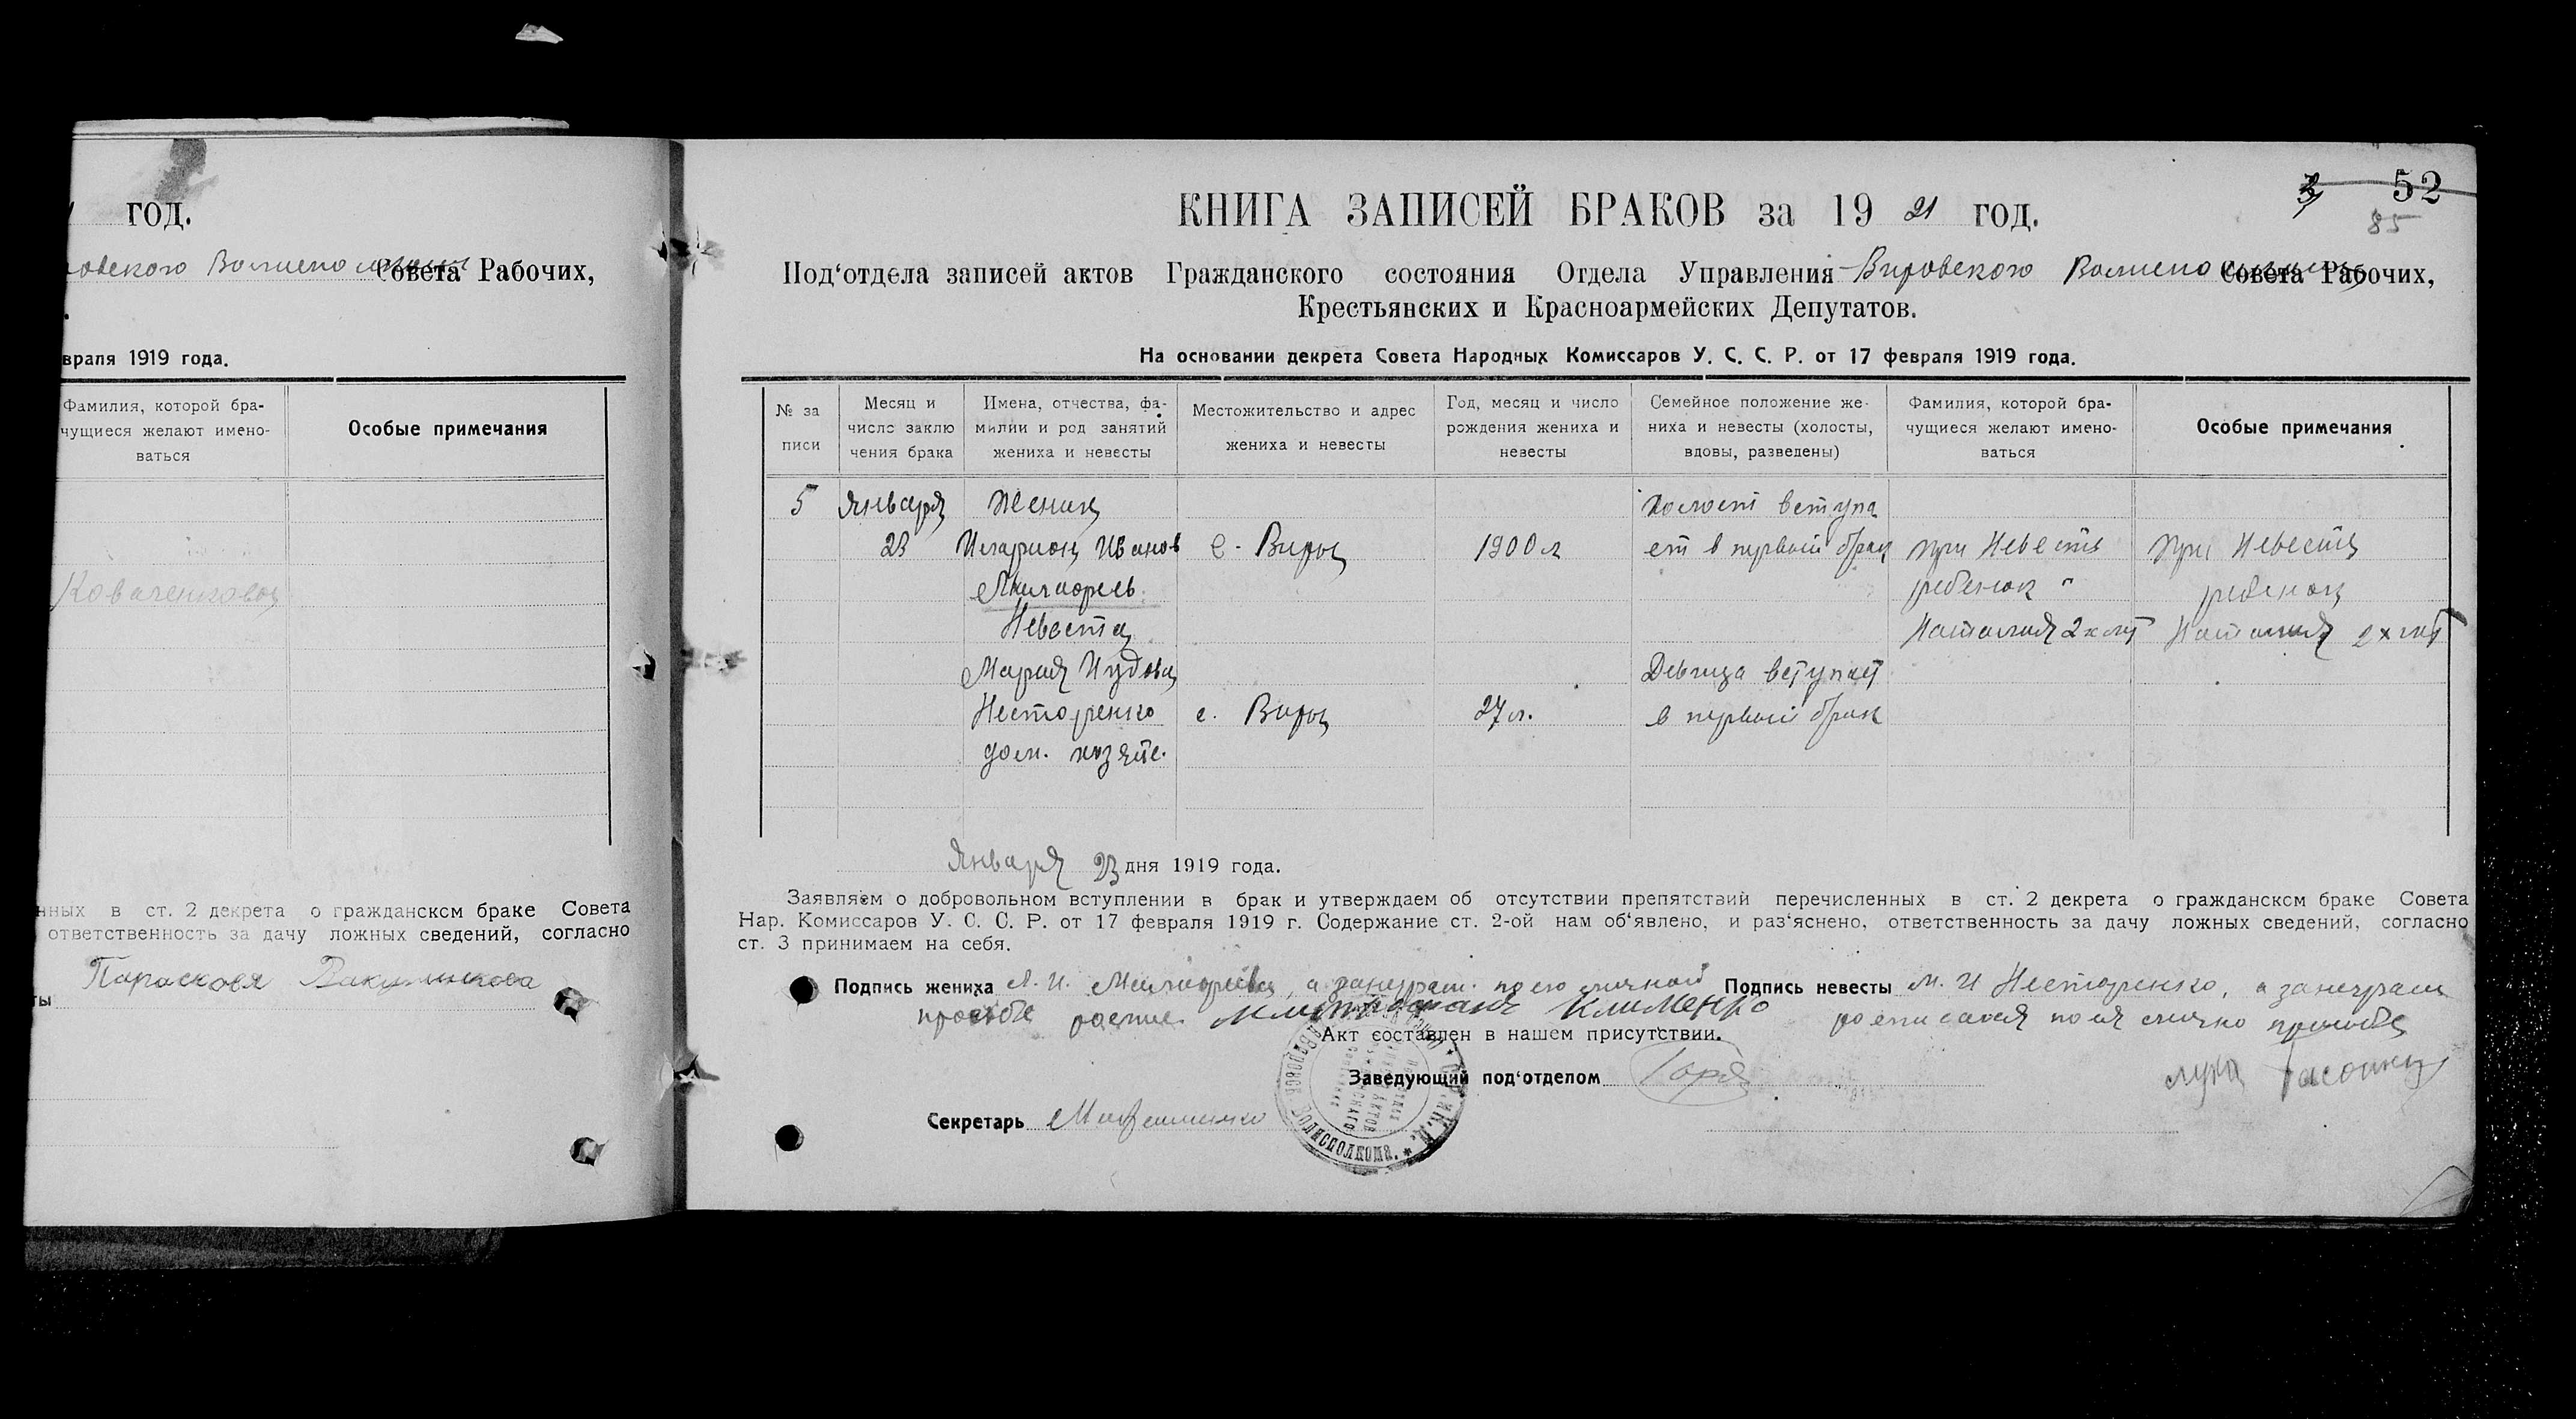 год.
Совета Рабочих,
враля 1919 года.
Фамилия, которой бра-
чущиеся желают имено-
ваться
Особые примечания
Коваленкова
нных в ст. 2 декрета о гражданском браке Совета
ответственность за дачу ложных сведений, согласно
Параскова
ты
52
85
КНИГА ЗАПИСЕЙ БРАКОВ за 19 21 год.
Под‘отдела записей актов Гражданского состояния Отдела Управления Вировского Совета Рабочих,
Крестьянских и Красноармейских Депутатов.
На основании декрета Совета Народных Комиссаров У. С. С. Р. от 17 февраля 1919 года.
№ за
писи
Месяц и
число заклю
чения брака
Имена, отчества, фа-
милии и род занятий
жениха и невесты
Местожительство и адрес
жениха и невесты
Год, месяц и число
рождения жениха и
невесты
Семейное положение же-
ниха и невесты (холосты,
вдовы, разведены)
Фамилия, которой бра-
чущиеся желают имено-
ваться
Особые примечания
5 Января Жених Холост вступа
23 Иларион Иванов с. Виры 1900 г ет в первый брак при Невесте При Невесте
ребенок ребенок
Невеста Наталия 2х лет Наталия 2х лет
Мария Девица вступает
Несторенко с. Виры 27 л. в первый брак
дом. хозяйс.
Января 23 дня 1919 года.
Заявляем о добровольном вступлении в брак и утверждаем об отсутствии препятствий перечисленных в ст. 2 декрета о гражданском браке Совета
Нар. Комиссаров У. С. С. Р. от 17 февраля 1919 г. Содержание ст. 2-ой нам об‘явлено, и раз‘яснено, ответственность за дачу ложных сведений, согласно
ст. 3 принимаем на себя.
Подпись жениха а неграм. по его личной Подпись невесты М. И Несторенко, а за неграм
просьбе роспис Клименко росписался по ея лично просьбе
Акт составлен в нашем присутствии.
Заведующий под‘отделом
Лука
Секретарь